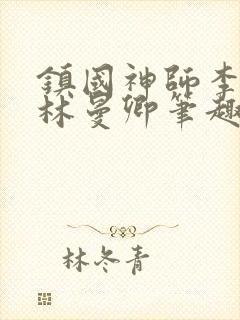 鎮國神師李
林曼卿筆趣
林冬青